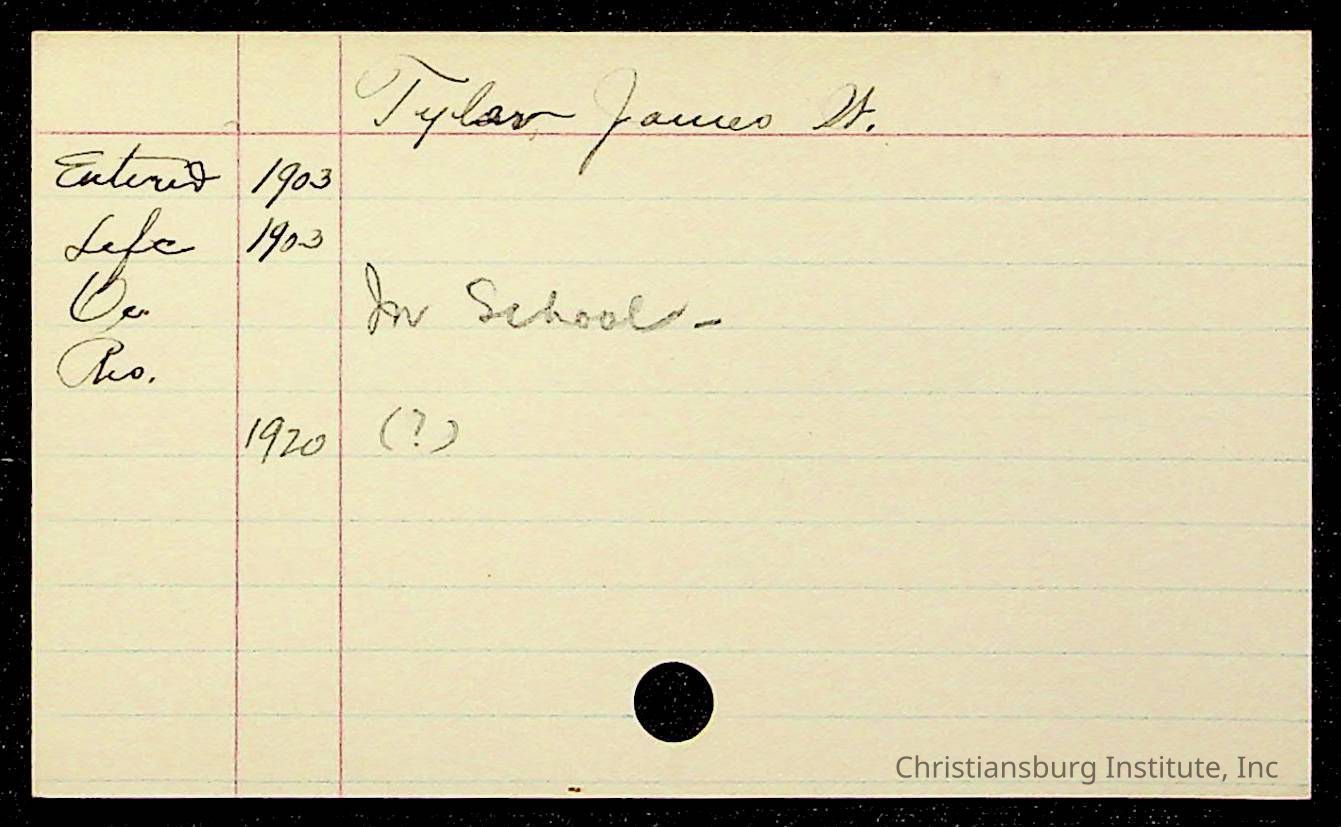 Tyler, James W.
Entered 1903
Left 1903
Oc. In School -
Res.
1920 (?)
Christiansburg Institute, Inc